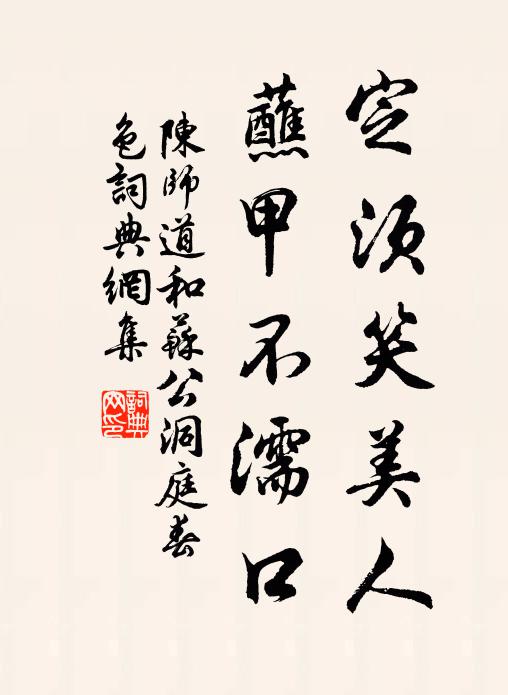 定須笑美人
蘸甲不濡口
陳師道和蘇公洞庭春
色詞典網集
詞典
网印